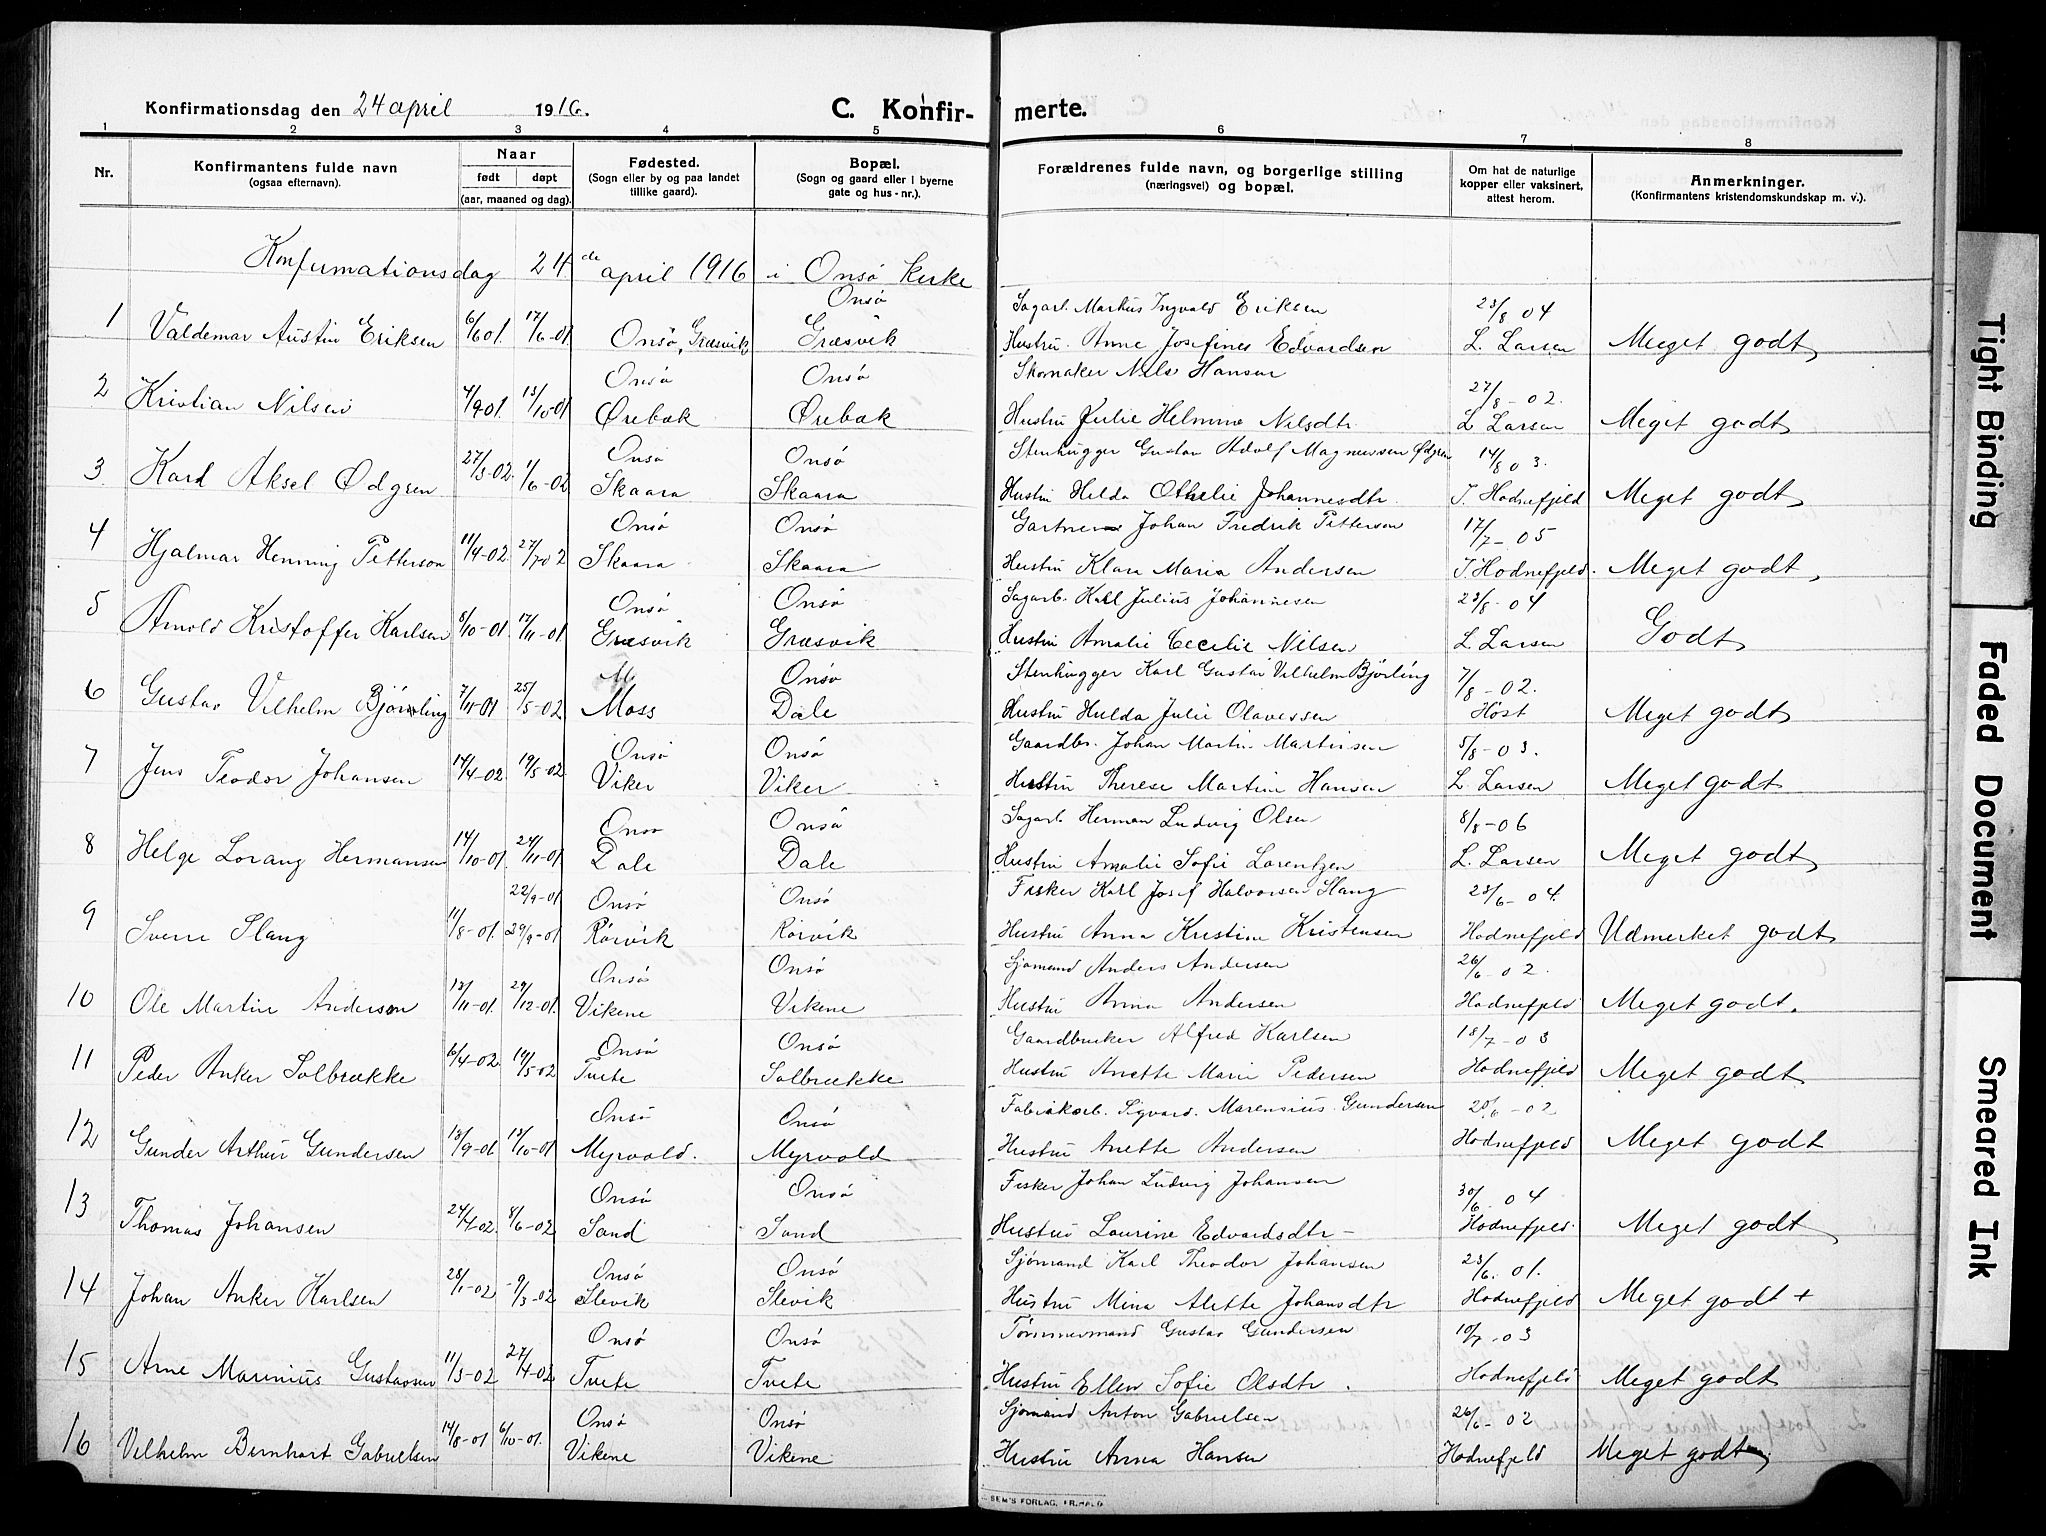 Konfirmationsdag den 24 april 1916. C. Konfir- merte.
1 2 3 4 5 6 7 8
Nr. Konfirmantens fulde navn (ogsaa efternavn). Naar født døpt (aar, maaned og dag). Fødested. (Sogn eller by og paa landet tillike gaard). Bopæl. (Sogn og gaard eller i byerne gate og hus-nr.). Forældrenes fulde navn, og borgerlige stilling (næringsvei) og bopæl. Om hat de naturlige kopper eller vaksinert, attest herom. Anmerkninger. (Konfirmantens kristendomskundskap m. v.).
Konfirmationsdag 24de april 1916 i Onsö kirke
Onsö Sagarb. Markus Ingvald Eriksen 23/8 04
1 Valdemar Austin Eriksen 6/6 01. 17/6-01. Onsö, Græsvik Græsvik Hustru Anne Josefines Edvardsen L. Larsen Meget godt
Onsö Onsö Skomaker Nils Hansen 27/8-02.
2 Kristian Nilsen 4/9 01. 13/10-01 Ørebæk Ørebæk Hustru Julie Helmine Nilsdtr. L Larsen Meget godt
Onsö Onsö Stenhugger Gustav Adolf Magnussen Ødgren 14/8 03.
3 Karl Aksel Ødgren 27/3-02. 1/6-02 Skaara Skaara Hustru Hilda Othelie Johannesdtr. T. Hodnefjeld Meget godt
Onsö Onsö Gartner Johan Fredrik Pettersen 17/7-05
4 Hjalmar Henning Petterson 11/4-02. 27/7 02 Skaara Skaara Hustru Klara Maria Andersen T. Hodnefjeld. Meget godt,
Onsö Onsö Sagarb. Karl Julius Johannesen 23/8-04
5 Arnold Kristoffer Karlsen 8/10-01. 17/11-01. Græsvik Græsvik Hustru Amalie Cecilie Nilsen L. Larsen Godt
M. Onsö Stenhugger Karl Gustav Vilhelm Bjørling 7/8-02.
6 Gustav Vilhelm Bjørling 7/11-01 25/5-02 Moss Dale Hustru Hulda Julie Olavessen Høst Meget godt
Onsö Onsö Gaardbr. Johan Martin Martinsen 5/8-03.
7 Jens Teodor Johansen 14/4-02. 19/5-02 Viker Viker Hustru Therese Martine Hansen L. Larsen Meget godt
Onsö Onsö Sagarb. Herman Ludvig Olsen 8/8-06
8 Helge Lorang Hermansen 14/10-01. 24/11-01 Dale Dale Hustru Amalie Sofie Lorentzen L. Larsen Meget godt
22/9-01 Onsö Onsö Fisker Karl Josef Halvorsen Slang 28/6-04.
9 Sverre Slang 11/8-01. 29/9-01 Rörvik Rörvik Hustru Anna Kristine Kristensen Hodnefjeld Udmerket godt
Onsö Onsö Sjömand Anders Andersen 26/6-02.
10 Ole Martin Anderson 13/11-01. 29/12-01. Vikene Vikene Hustru Anna Andersen Hodnefjeld Meget godt.
Onsö Onsö Gaardbruker Alfred Karlsen 18/7-03
11 Peder Anker Solbrække 6/4-02. 19/5-02 Tvete Solbrække Hustru Anette Marie Pedersen Hodnefjeld Meget godt
Onsö Onsö Fabrikarb. Sigvard Marensius Gundersen 20/6-02
12 Gunder Arthur Gundersen 13/9-01 13/10-01 Myrvold. Myrvold Hustru Anette Andersen Hodnefjeld Meget godt
Onsö Onsö Fisker Johan Ludvig Johansen 30/6-04
13 Thomas Johansen 24/4-02. 8/6-02 Sand Sand Hustru Laurine Edvardsdtr- Hodnefjeld. Meget godt
Onsö Onsö Sjömand Karl Theodor Johansen 23/6. 01.
14 Johan Anker Karlsen 28/1-02 9/3-02 Slevik Slevik Hustru Mina Alette Johansdtr Hodnefjeld Meget godt +
Onsö Onsö Tømmermand Gustav Gundersen 10/7-03
15 Arne Marinius Gustavsen 11/3-02 27/4-02 Tvete Tvete Hustru Ellen Sofie Olsdtr. Hodnefjeld Meget godt
Onsö Onsö Sjømand Anton Gabrielsen 26/6-02
16 Vilhelm Bernhart Gabrielsen 14/8-01 6/10-01. Vikene Vikene Hustru Anna Hansen Hodnefjeld Meget godt.
SEM'S FORLAG, FR.HALD
Tight Binding
Faded Document
Smeared Ink